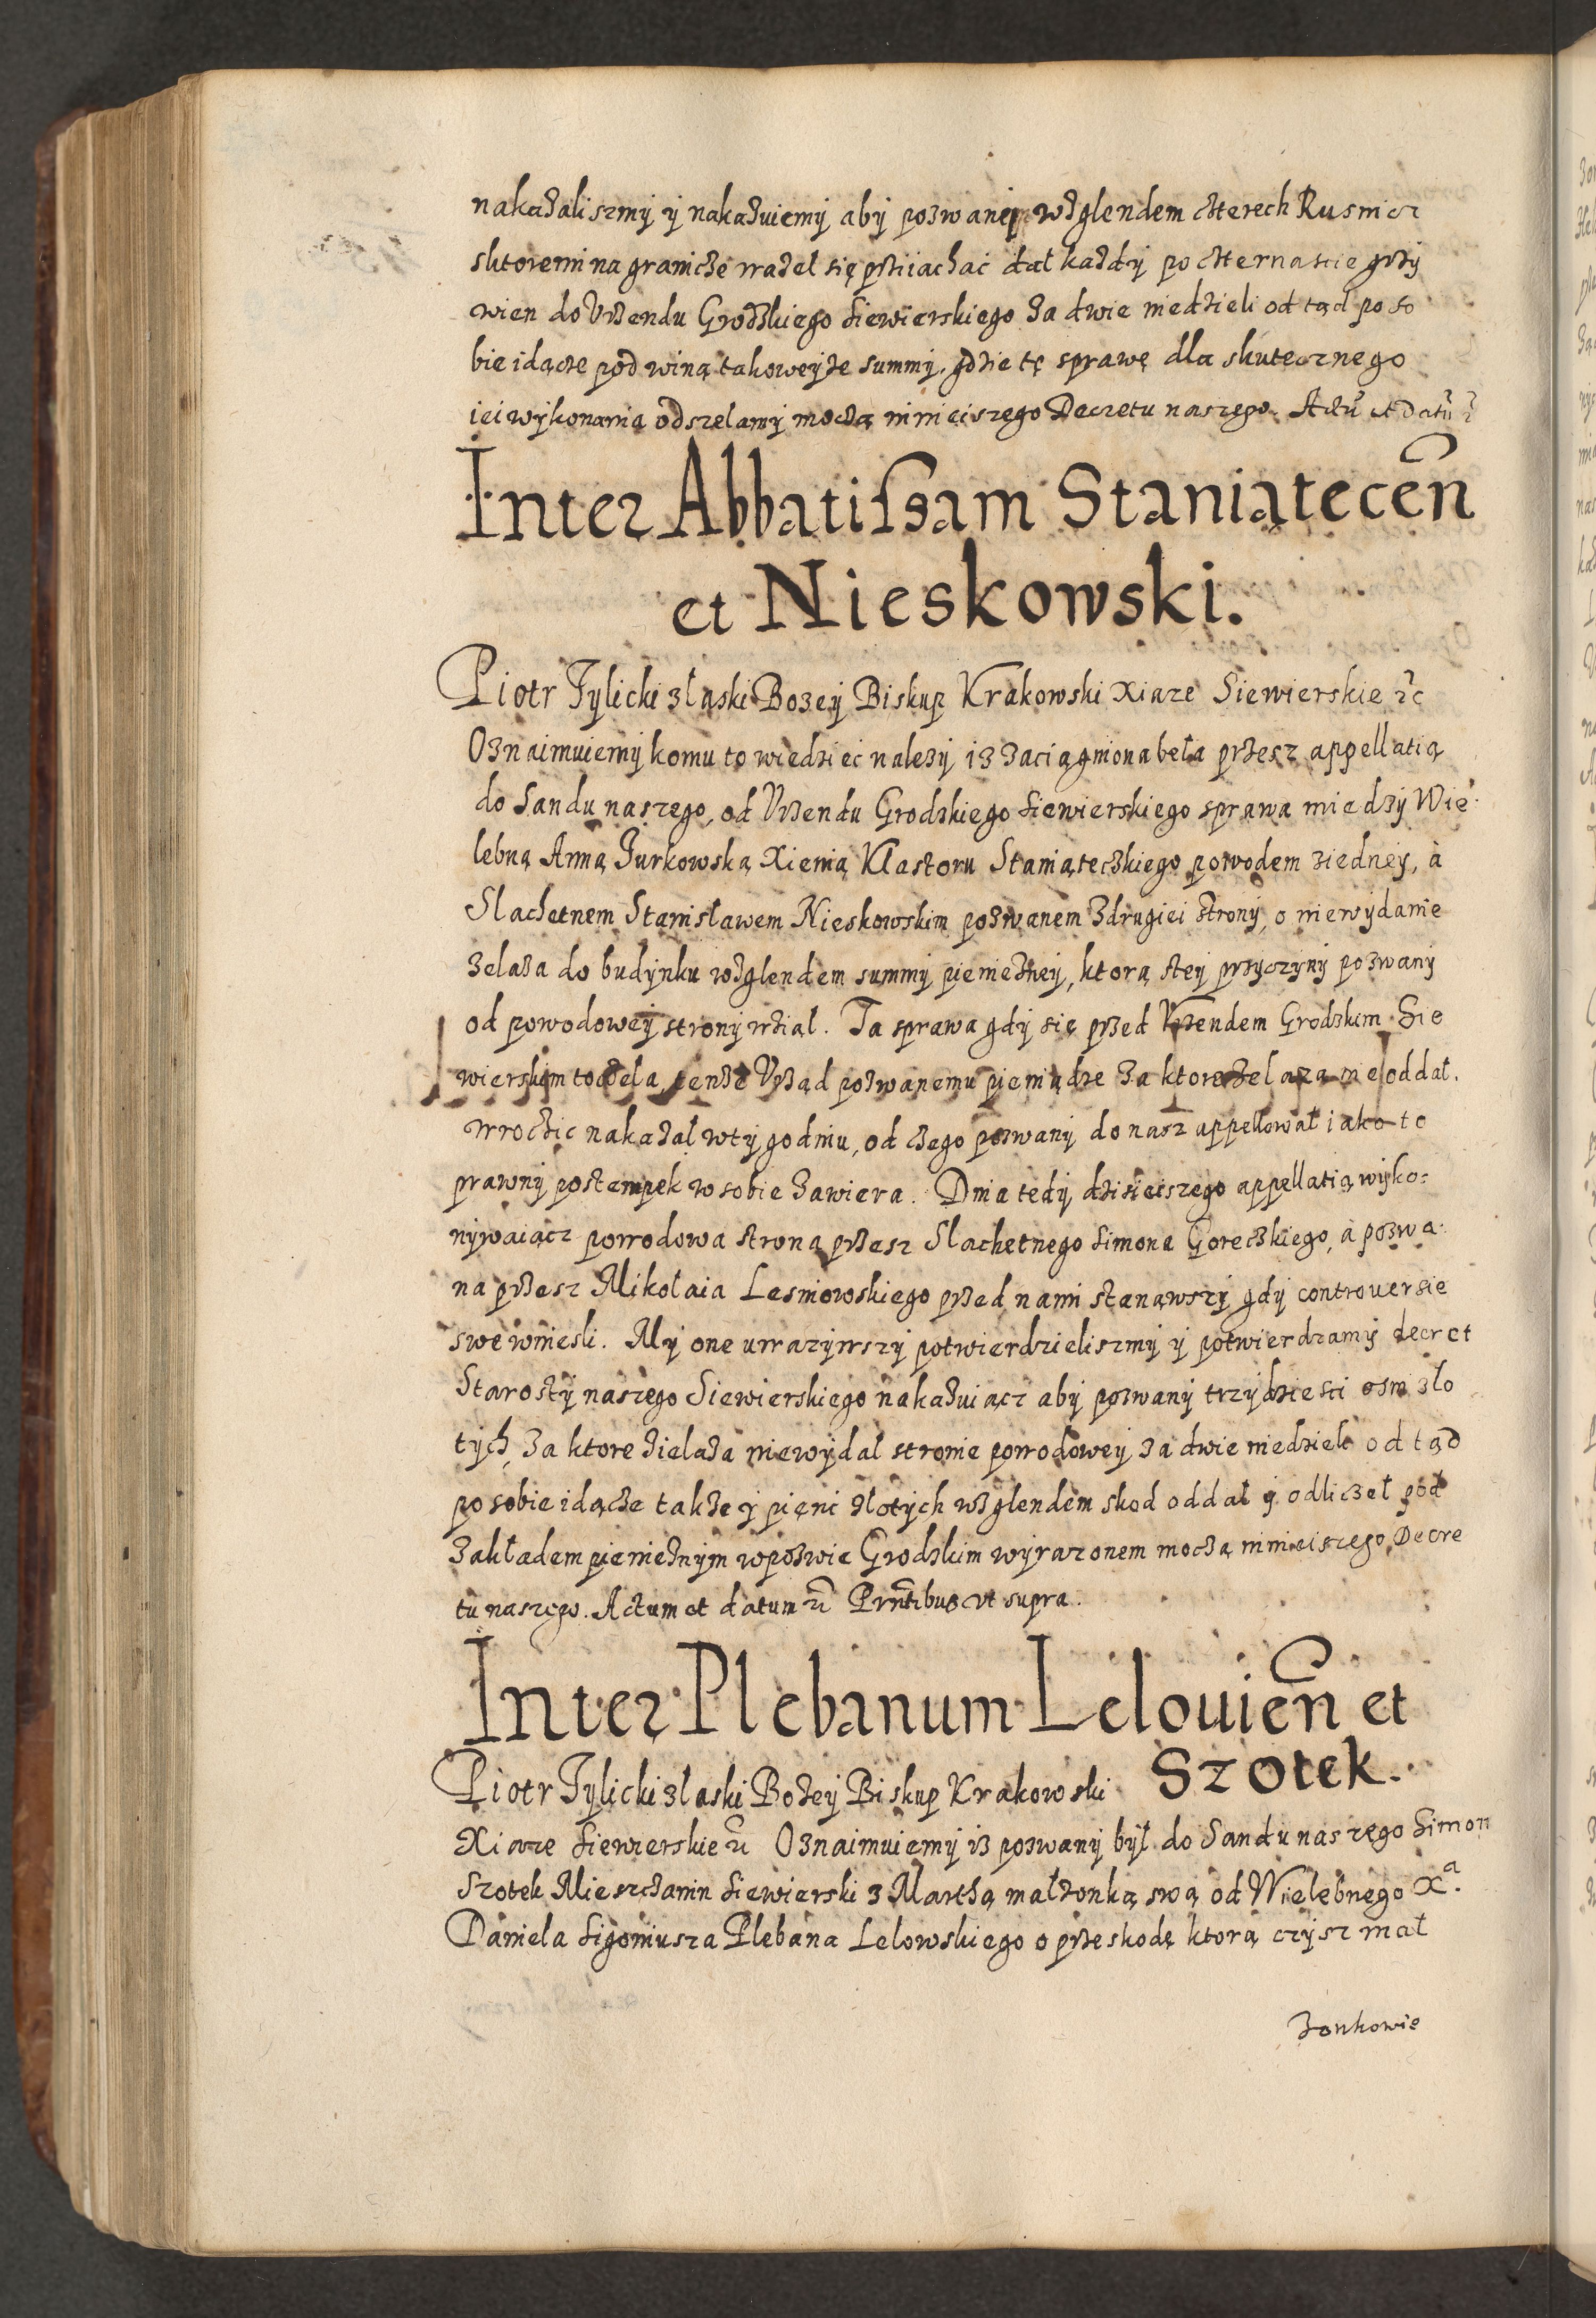 nakazaliszmÿ ÿ nakazuiemÿ abÿ pozwanei wzglendem czterech Rusnicz
sktoremi na granicze wazel się przÿiachać dał każdÿ po czternascie grzÿ
wien do Vrzendu Grodzkiego Siewierskiego za dwie niedzieli od tąd po so
bie idącze pod winą takoweÿze summÿ. gdzie tę sprawę dla skutecznego
iei wÿkonania odszelamÿ moczą ninieiszego Decretu naszego. Actũ et Datũ ꝛ̃
Inter Abbatissam Staniątecen̄
et Nieskowski.
Piotr Tylicki z łaski Bozeÿ Biskup Krakowski Xiaze Siewierskie ꝛ̃c
Oznaimuiemÿ komu to wiedziec nalezÿ iz zaciągniona beła przesz appellatią
do Sandu naszego, od Vrzendu Grodzkiego Siewierskiego sprawa miedzÿ Wie
lebną Anną Jurkowską Xienią Klasztoru Staniąteczkiego powodem ziedneÿ, à
Slachetnem Stanisławem Nieskowskim pozwanem z drugiei stronÿ, o niewÿdanie
zelaza do budÿnku wzglendem summÿ pieniezneÿ, ktorą steÿ przÿczynÿ pozwanÿ
od powodoweÿ stronÿ wział. Ta sprawa gdÿ się przed Vrzendem Grodzkim Sie
wierskim toczela, tenże Vrząd pozwanemu pieniądze za ktore zelaza nie oddał.
wroczic nakazał w tÿgodniu, od czego pozwanÿ do nasz appellował iako to
prawnÿ postempek w sobie zawiera. Dnia tedÿ dzisieiszego appellatią wÿko=
nÿwaiącz powodowa strona przesz Slachetnego Simona Goreczkiego, à pozwa
na przesz Mikołaia Lesniowskiego przed nami stanąwszÿ gdÿ controuersie
swe wniesli. Mÿ one uwazÿwszÿ potwierdzieliszmÿ ÿ potwierdzamÿ decret
Starostÿ naszego Siewierskiego nakazuiącz abÿ pozwanÿ trzÿdziesci osm zło
tÿch, za ktore zielaza niewÿdał stronie powodoweÿ za dwie niedzieli od tąd
po sobie idącze takze ÿ pięni złotÿch wzglendem skod oddał ÿ odliczeł pod
zakładem pieniężnÿm w pozwie Grodzkim wÿrazonem moczą ninieiszego Decre
tu naszego. Actum et datum ꝛ̃ Prn̄tibus vt supra.
Inter Plebanum Lelouien̄ et
Szotek.
Piotr Tylicki z łaski Bożeÿ Biskup Krakowski
Xiaze Siewierskie ꝛ̃ Oznaimuiemÿ iz pozwanÿ bÿł do Sandu naszego Simon
Szotek Mieszczanin Siewierski z Marthą małzonką swą od Wielebnego Xᵃ.
Daniela Sigoniusza Plebana Lelowskiego o przeskodę ktorą czÿsz mał
zonkowie